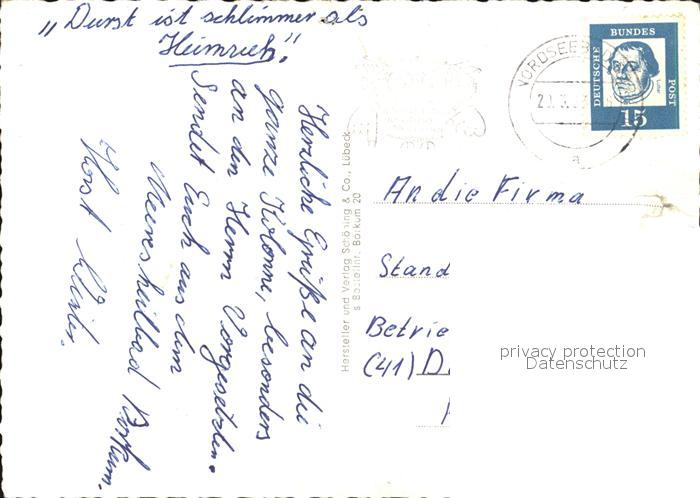 „Durst ist schlimmer als
Heimweh“.
Herzliche Grüße an die
ganze Kolonne, besonders
an den Herrn Vorgesetzten.
Sendet Euch aus dem
Meeresheilbad Borkum.
Horst
Hersteller und Verlag Schöning & Co., Lübeck
Bestellnr. Borkum 20
NORDSEEB
DEUTSCHE BUNDESPOST
Luther
15
a
An die Firma
Stand
Betrie
(41) D
privacy protection
Datenschutz